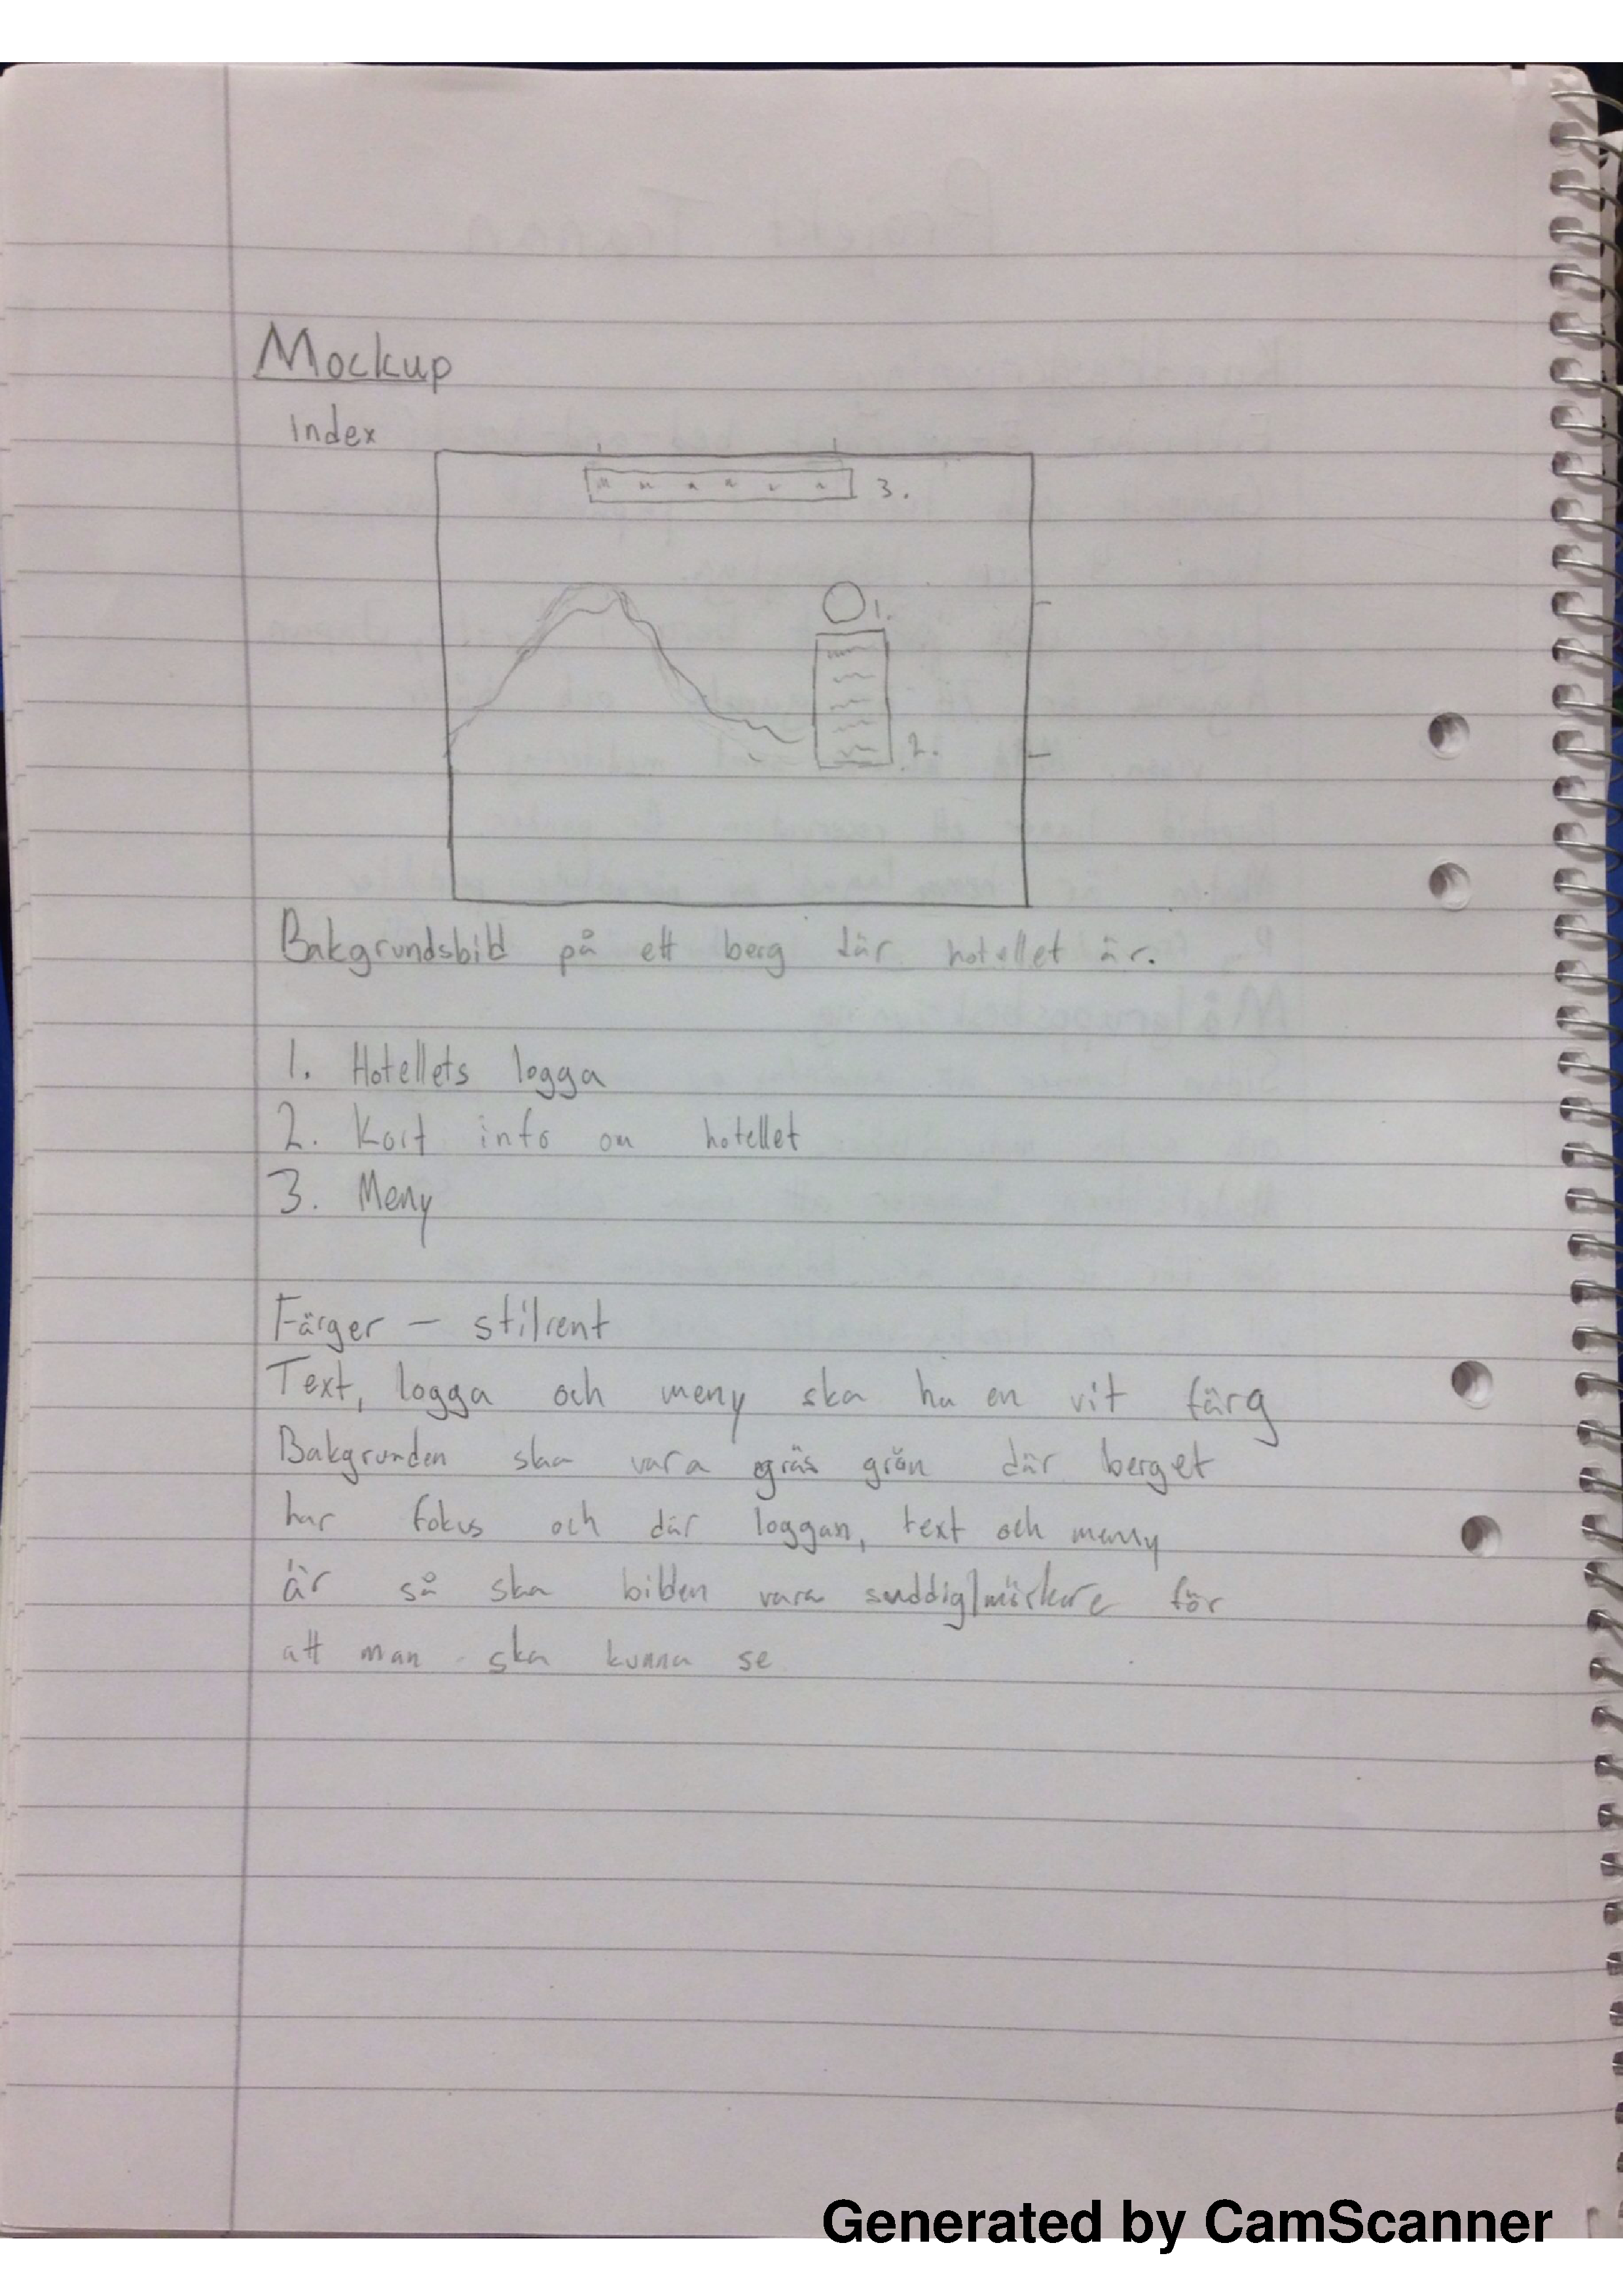 Mockup
Index
3.
1.
2.
Bakgrundsbild på ett berg där hotellet är.
1. Hotellets logga
2. Kort info om hotellet
3. Meny
Färger – stilrent
Text, logga och meny ska ha en vit färg
Bakgrunden ska vara gräs grön där berget
har fokus och där loggan, text och meny
är så ska bilden vara suddig/mörkare för
att man ska kunna se
Generated by CamScanner